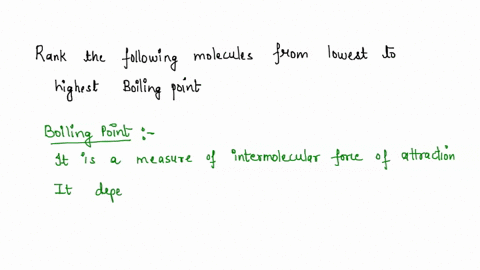 Rank the following molecules from lowest to
highest Boiling point
Boiling Point :-
It is a measure of intermolecular force of attraction
It depe